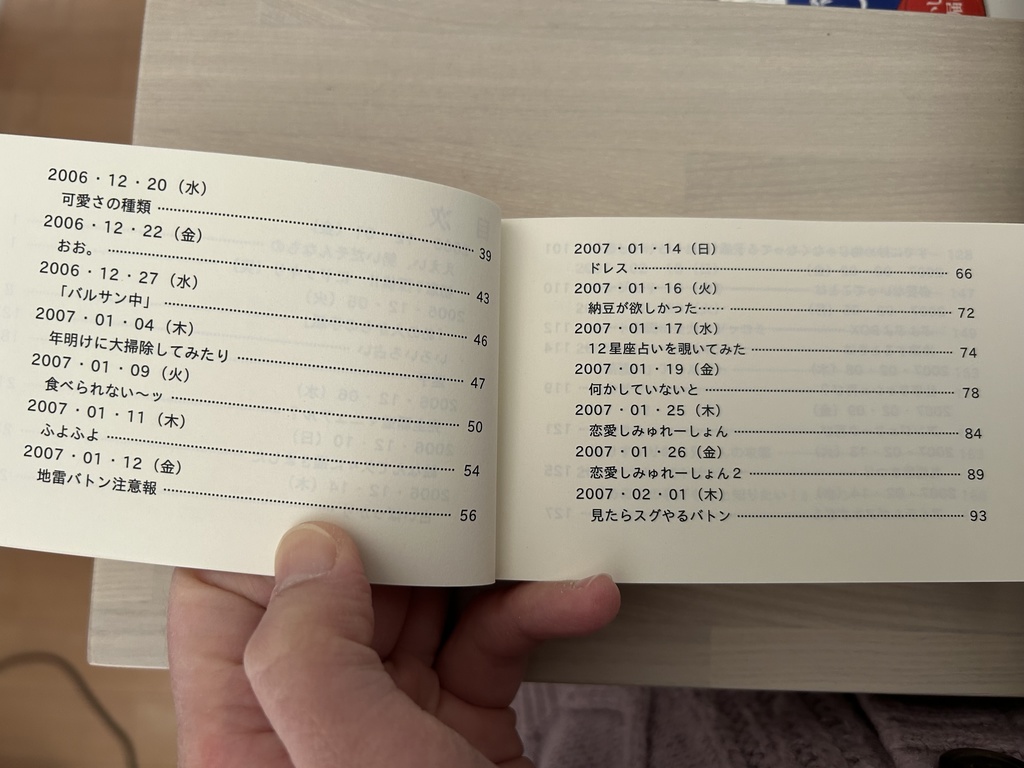 2006・12・20（水）
可愛さの種類 39
2006・12・22（金）
おお。 43
2006・12・27（水）
「バルサン中」 46
2007・01・04（木）
年明けに大掃除してみたり 47
2007・01・09（火）
食べられない〜ッ 50
2007・01・11（木）
ふよふよ 54
2007・01・12（金）
地雷バトン注意報 56
2007・01・14（日）
ドレス 66
2007・01・16（火）
納豆が欲しかった…… 72
2007・01・17（水）
12星座占いを覗いてみた 74
2007・01・19（金）
何かしていないと 78
2007・01・25（木）
恋愛しみゅれーしょん 84
2007・01・26（金）
恋愛しみゅれーしょん２ 89
2007・02・01（木）
見たらスグやるバトン 93